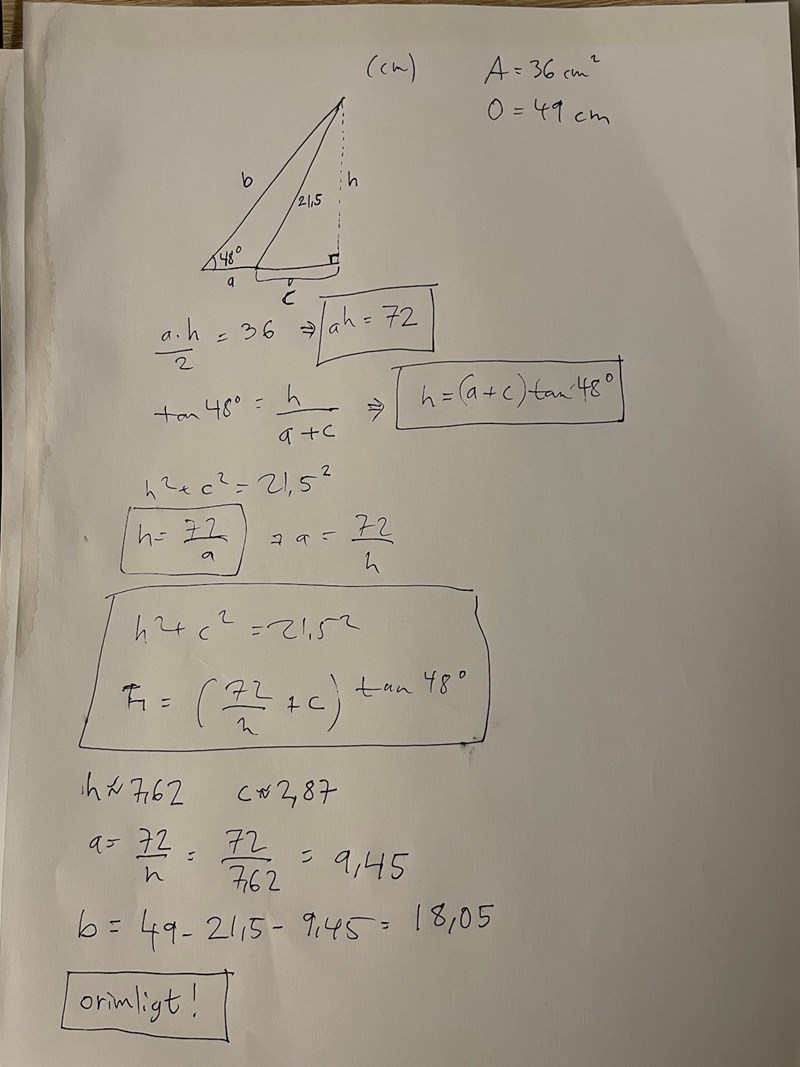 (cm) A = 36 cm²
O = 49 cm
b h
21,5
48°
a
c
a·h/2 = 36 ⇒ ah = 72
tan 48° = h/(a+c) ⇒ h = (a+c) tan 48°
h² + c² = 21,5²
h = 72/a ⇒ a = 72/h
h² + c² = 21,5²
h = (72/h + c) tan 48°
h ≈ 7,62 c ≈ 2,87
a = 72/h = 72/7,62 = 9,45
b = 49 - 21,5 - 9,45 = 18,05
orimligt!